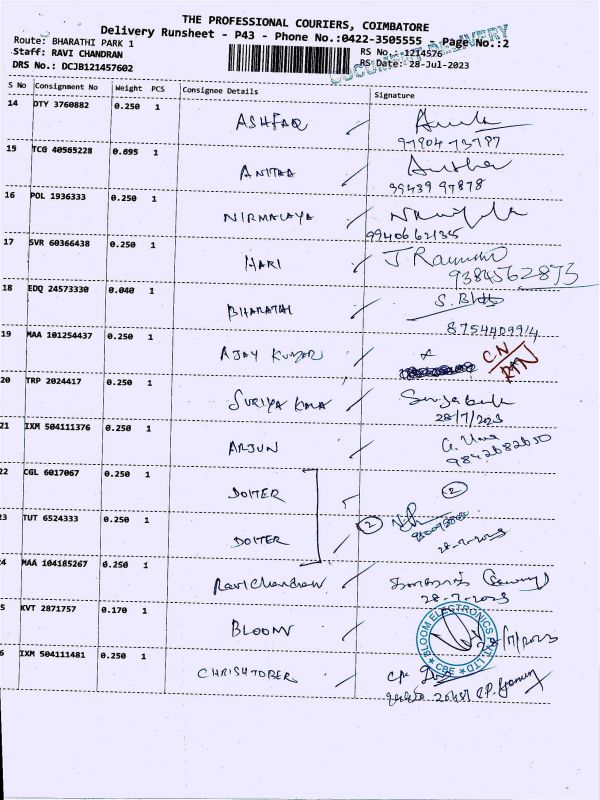 THE PROFESSIONAL COURIERS, COIMBATORE
Delivery Runsheet - P43 - Phone No.:0422-3505555 - Page No.:2
Route: BHARATHI PARK 1
RS No.: 1214576
Staff: RAVI CHANDRAN
RS Date: 28-Jul-2023
DRS No.: DCJB121457602
DOCUMENT DELIVERY
S No Consignment No Weight PCS Consignee Details Signature
14 DTY 3760882 0.250 1 ASHFAQ
97904 73787
15 TCG 40565228 0.695 1 ANITHA
99439 97878
16 POL 1936333 0.250 1 NIRMALAYA
9940662135
17 SVR 60366438 0.250 1 HARI
9384562873
18 EDQ 24573330 0.040 1 BHARATHI
8754409914
19 MAA 101254437 0.250 1 AJAY KUMAR
CN/RTN
20 TRP 2024417 0.250 1 SURIYA KALA
28/7/2023
21 IXM 504111376 0.250 1 ARJUN
9842682650
22 CGL 6017067 0.250 1 DOITER 2
23 TUT 6524333 0.250 1 DOITER 2
28-7-2023
24 MAA 104185267 0.250 1 Ravichandran
28-7-2023
25 KVT 2871757 0.170 1 BLOOM
BLOOM ELECTRONICS PVT. LTD
CBE
26 IXM 504111481 0.250 1 CHRISHTOBER